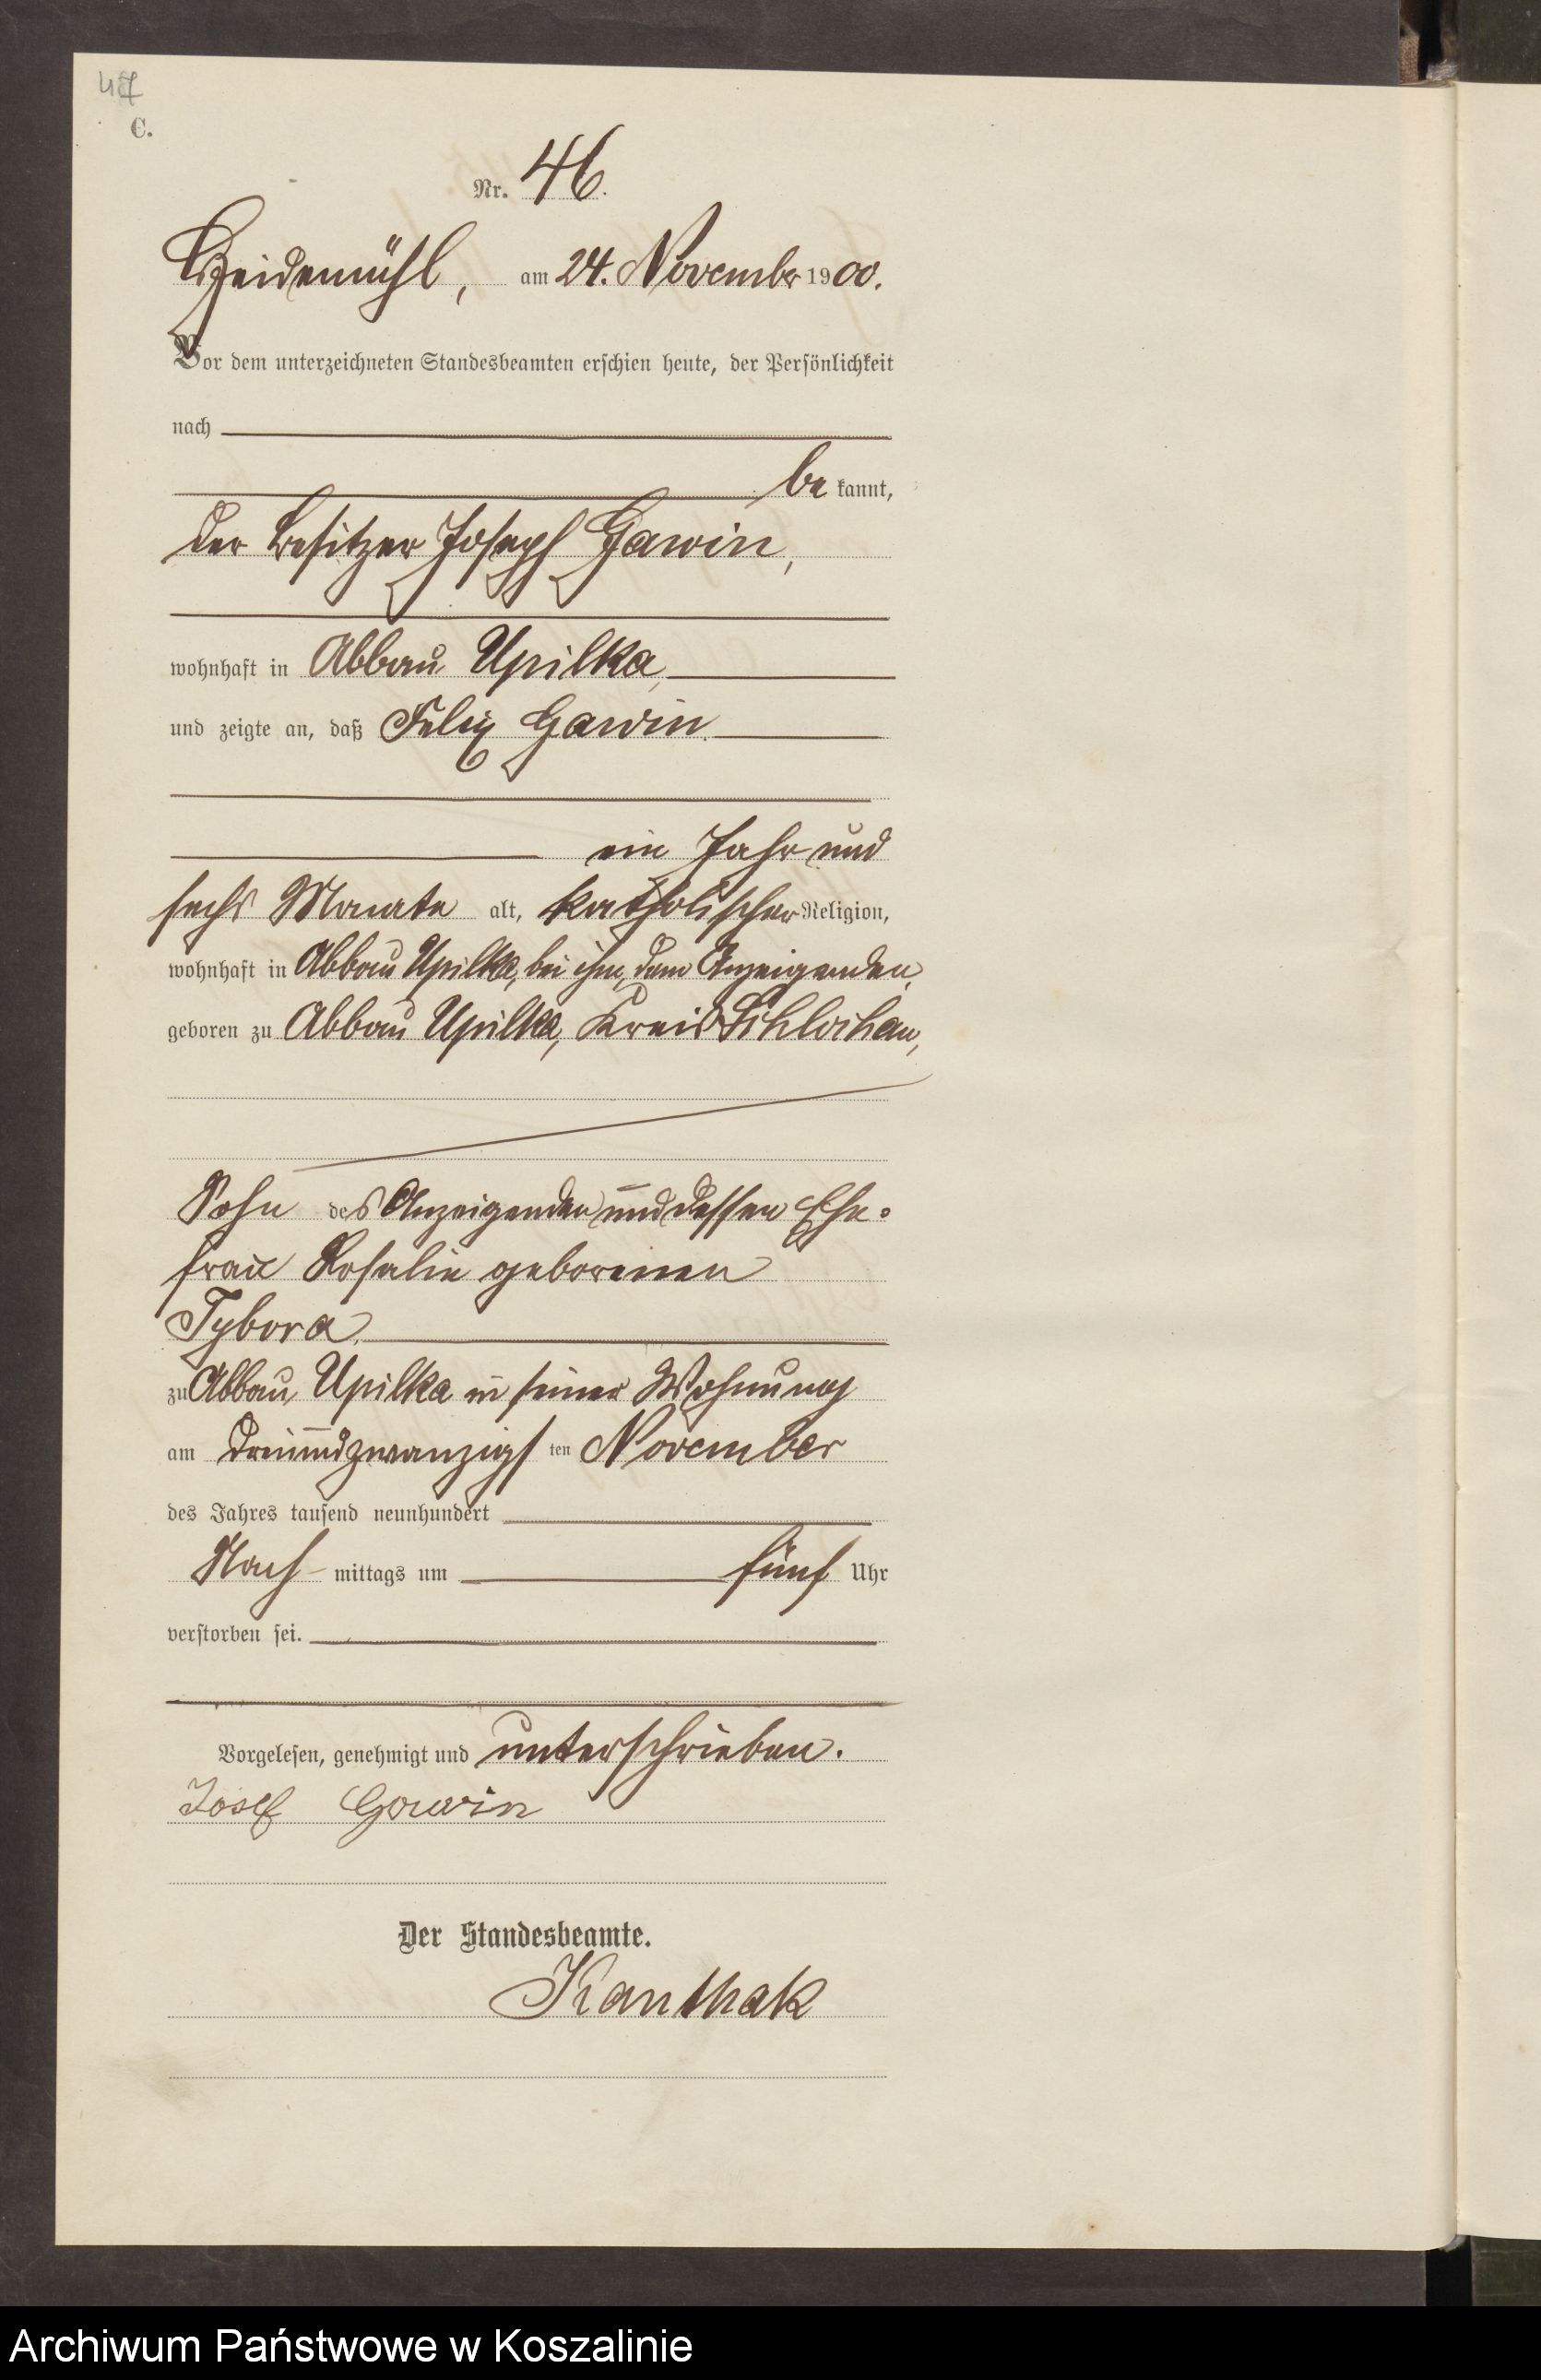 47
C.
Nr. 46.
Heidemühl, am 24. Novembr 1900.
Vor dem unterzeichneten Standesbeamten erschien heute, der Persönlichkeit
nach
be kannt,
der Besitzer Joseph Gawin,
wohnhaft in Abbau Upilka,
und zeigte an, daß Felix Gawin
ein Jahr und
sechs Monate alt, katholischer Religion,
wohnhaft in Abbau Upilka, bei ihm, dem Anzeigenden,
geboren zu Abbau Upilka, Kreis Schlochau,
Sohn des Anzeigenden und dessen Ehe-
frau Rosalie geborenen
Tybora.
zu Abbau Upilka in seiner Wohnung
am dreiundzwanzigsten November
des Jahres tausend neunhundert
Nach-mittags um fünf Uhr
verstorben sei.
Vorgelesen, genehmigt und unterschrieben.
Josef Gawin
Der Standesbeamte.
Kanthak
Archiwum Państwowe w Koszalinie